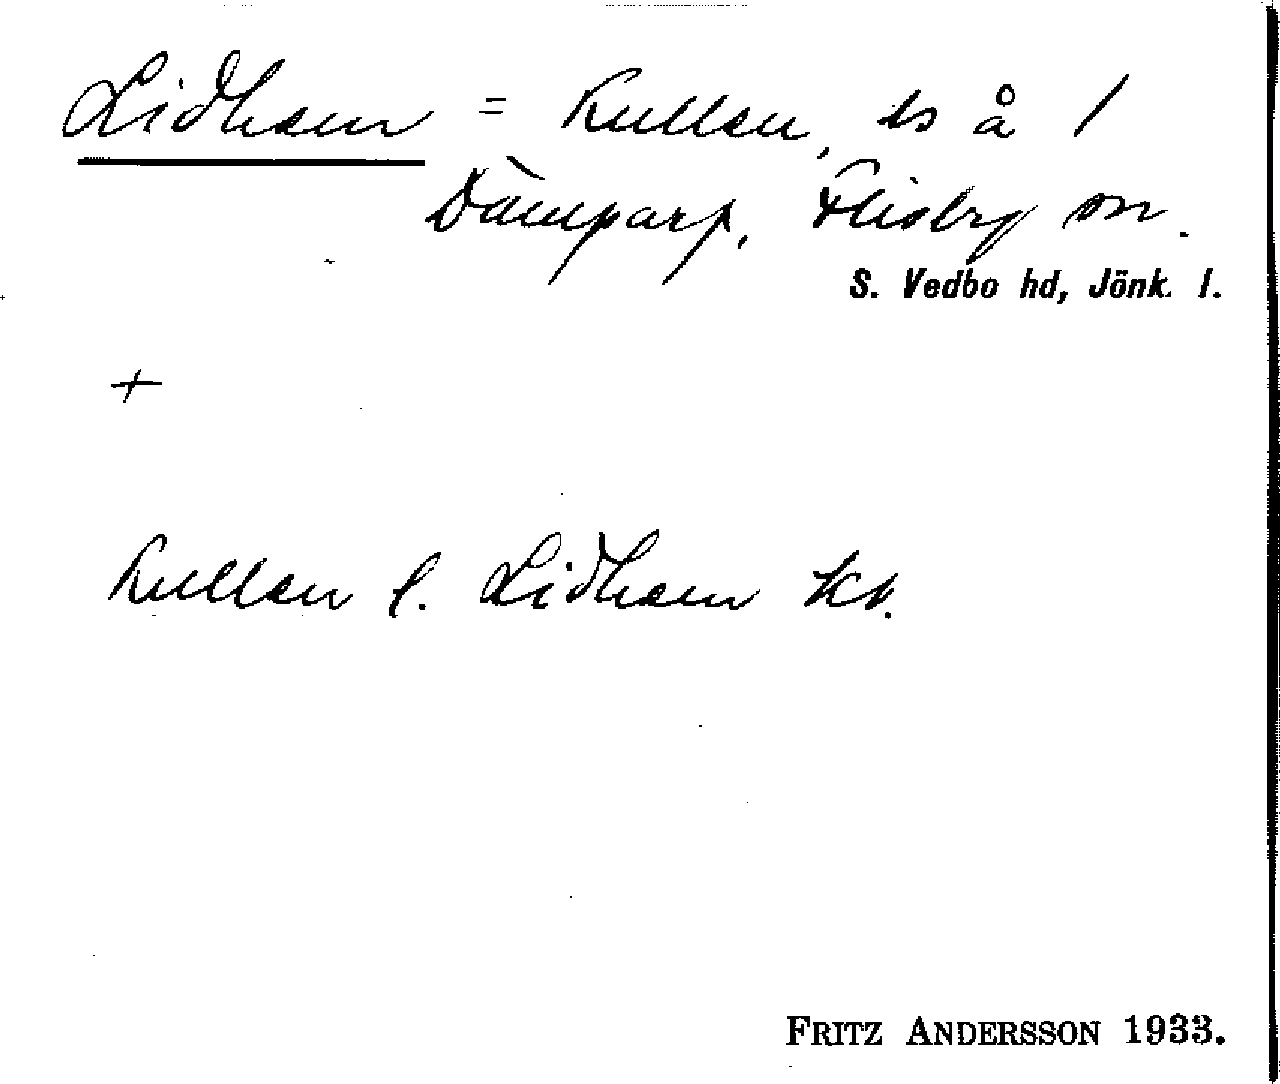 Lidhem = Kullen, ts å 1
Dämparp, Flisby sn.
S. Vedbo hd, Jönk. l.
+
Kullen l. Lidhem
FRITZ ANDERSSON 1933.